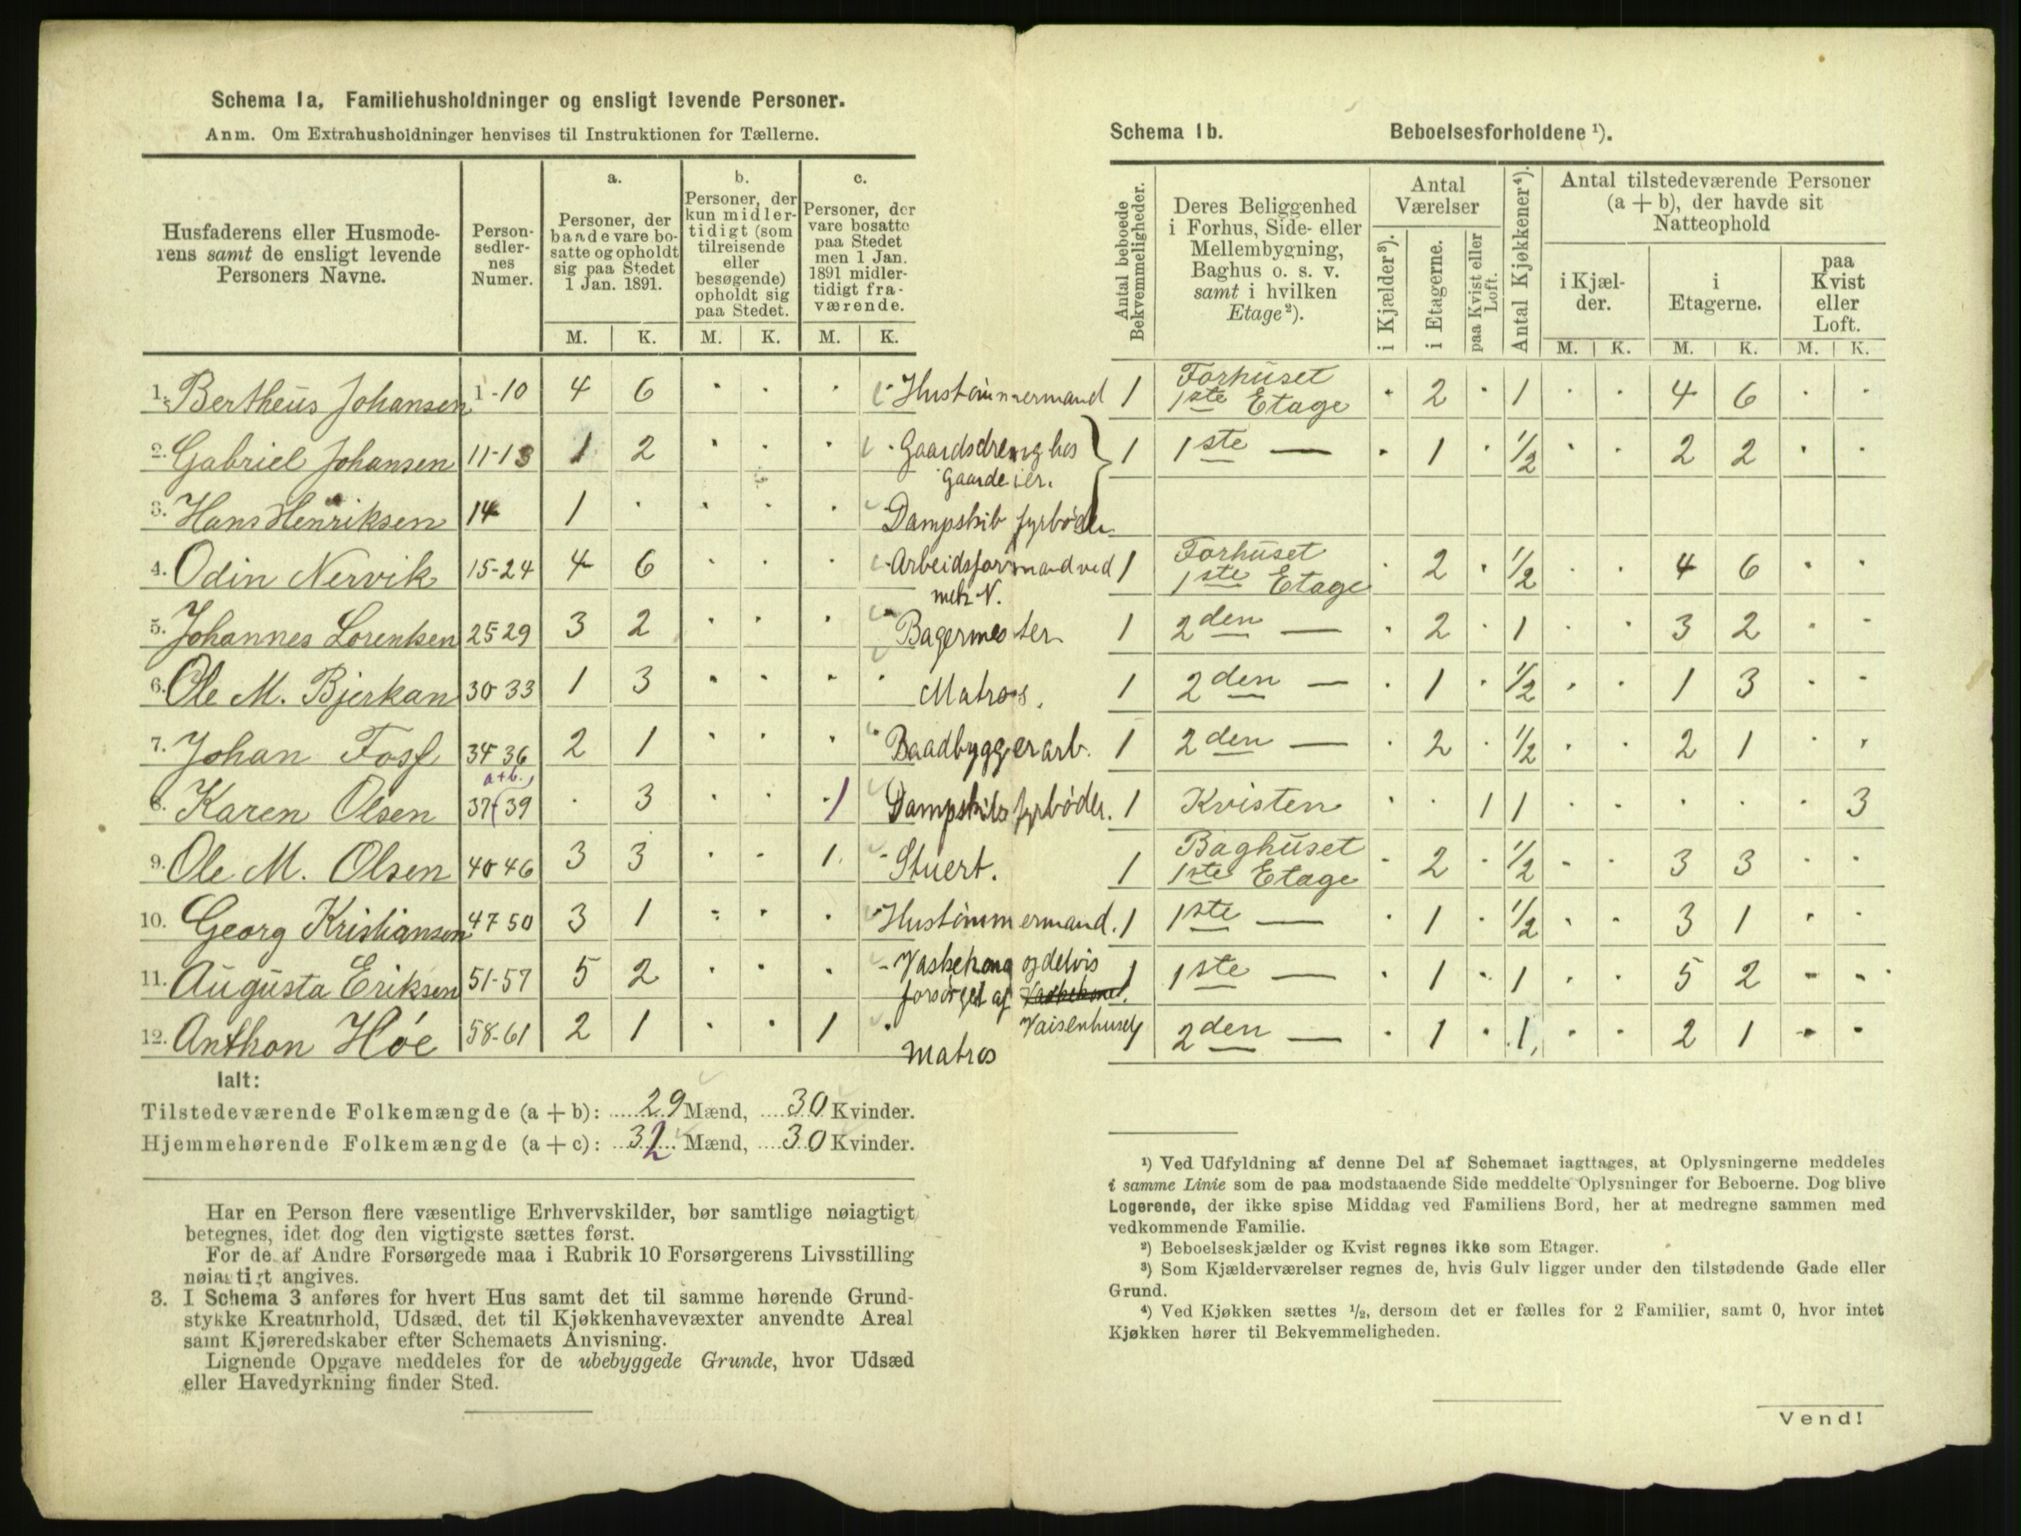 Schema 1a, Familiehusholdninger og ensligt levende Personer.
Anm. Om Extrahusholdninger henvises til Instruktionen for Tællerne.
Husfaderens eller Husmoderens samt de ensligt levende Personers Navne.
Personsedlernes Numer.
a. Personer, der baade vare bosatte og opholdt sig paa Stedet 1 Jan. 1891.
b. Personer, der kun midlertidigt (som tilreisende eller besøgende) opholdt sig paa Stedet.
c. Personer, der vare bosatte paa Stedet men 1 Jan. 1891 midlertidigt fraværende.
M. K. M. K. M. K.
1. Bertheus Johansen 1-10 4 6 · · · Hustømmermand
2. Gabriel Johansen 11-13 1 2 · · · Gaardsdreng hos
Gaardeier.
3. Hans Henriksen 14 1 · · · · Dampskib fyrbøder
4. Odin Nervik 15-24 4 6 · · · Arbeidsformand ved
mek V.
5. Johannes Lorentsen 25 29 3 2 · · · Bagermester
6. Ole M. Bjerkan 30 33 1 3 · · · · Matros.
7. Johan Fosf 34 36 2 1 · · · · Baadbyggerarb.
a+b.
8. Karen Olsen 37-39 · 3 · · 1 Dampskibsfyrbøder.
9. Ole M. Olsen 40 46 3 3 · · 1 - Stuert.
10. Georg Kristiansen 47 50 3 1 · · · Hustømmermand.
11. Augusta Eriksen 51-57 5 2 · · · - Vaskekong og delvis
forsørget af
Vaisenhuset
12. Anthon Høe 58-61 2 1 · · 1 · Matros
Ialt:
Tilstedeværende Folkemængde (a + b): 29 Mænd, 30 Kvinder.
Hjemmehørende Folkemængde (a + c): 32 Mænd, 30 Kvinder.
Har en Person flere væsentlige Erhvervskilder, bør samtlige nøiagtigt
betegnes, idet dog den vigtigste sættes først.
For de af Andre Forsørgede maa i Rubrik 10 Forsørgerens Livsstilling
nøiagtigt angives.
3. I Schema 3 anføres for hvert Hus samt det til samme hørende Grund-
stykke Kreaturhold, Udsæd, det til Kjøkkenhavevæxter anvendte Areal
samt Kjøreredskaber efter Schemaets Anvisning.
Lignende Opgave meddeles for de ubebyggede Grunde, hvor Udsæd
eller Havedyrkning finder Sted.
Schema 1b. Beboelsesforholdene ¹).
Antal beboede Bekvemmeligheder.
Deres Beliggenhed i Forhus, Side- eller Mellembygning, Baghus o. s. v. samt i hvilken Etage²).
Antal Værelser
i Kjælder³).
i Etagerne.
paa Kvist eller Loft.
Antal Kjøkkener⁴).
Antal tilstedeværende Personer (a + b), der havde sit Natteophold
i Kjælder.
i Etagerne.
paa Kvist eller Loft.
M. K. M. K. M. K.
1 Forhuset 1ste Etage · 2 · 1 · · 4 6 · ·
1 1ste — · 1 · 1/2 · · 2 2 · ·
1 Forhuset 1ste Etage · 2 · 1/2 · · 4 6 · ·
1 2den — · 2 · 1 · · 3 2 · ·
1 2den — · 1 · 1/2 · · 1 3 · ·
1 2den — · 2 · 1/2 · · 2 1 · ·
1 Kvisten · · 1 1 · · · · · 3
1 Baghuset 1ste Etage · 2 · 1/2 · · 3 3 · ·
1 1ste — · 1 · 1/2 · · 3 1 · ·
1 1ste — · 1 · 1 · · 5 2 · ·
1 2den — · 1 · 1 · · 2 1 · ·
¹) Ved Udfyldning af denne Del af Schemaet iagttages, at Oplysningerne meddeles
i samme Linie som de paa modstaaende Side meddelte Oplysninger for Beboerne. Dog blive
Logerende, der ikke spise Middag ved Familiens Bord, her at medregne sammen med
vedkommende Familie.
²) Beboelseskjælder og Kvist regnes ikke som Etager.
³) Som Kjælderværelser regnes de, hvis Gulv ligger under den tilstødende Gade eller
Grund.
⁴) Ved Kjøkken sættes ¹/₂, dersom det er fælles for 2 Familier, samt 0, hvor intet
Kjøkken hører til Bekvemmeligheden.
Vend!